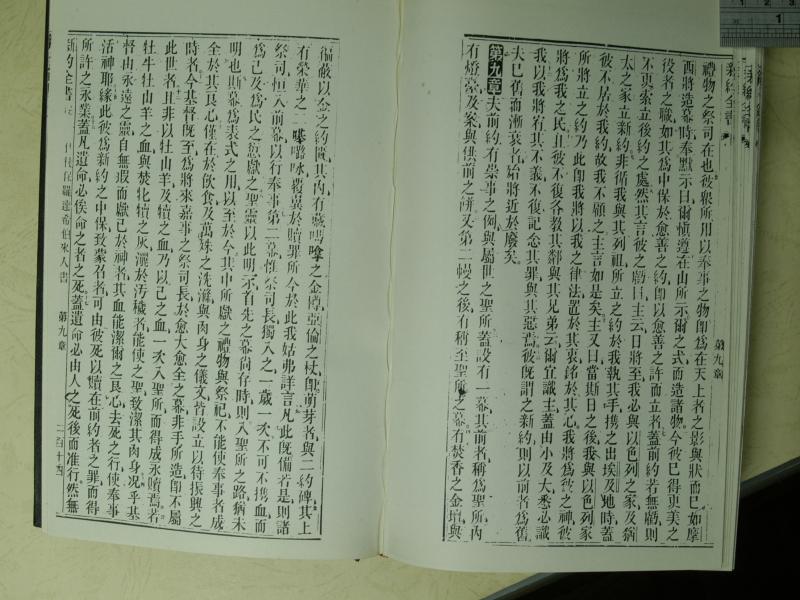 新約全書
第九章
禮物之祭司在也彼輩所用以奉事之物卽爲在天上者之影與狀而已如摩
西將造幕時奉默示曰爾愼遵在山所示爾之式而造諸物今彼已得更美之
役者之職如其爲中保於愈善之約卽以愈善之許而立者蓋前約若無虧則
不更索立後約之處然其言彼之虧曰主云日將至我必與以色列之家及猶
太之家立新約非循我與其列祖所立之約於我執其手攜之出埃及地時蓋
彼不居於我約故我不顧之主言如是矣主又曰當斯日之後我與以色列家
所將立之約乃此卽我將以我之律法置於其衷銘於其心我將爲彼之神彼
將爲我之民且彼不復各教其鄰與其兄弟云爾宜識主蓋由小及大悉必識
我以我將宥其不義不復記念其罪與其惡焉彼旣謂之新約則以前者爲舊
夫已舊而漸衰者始將近於廢矣
第九章夫前約有崇事之例與屬世之聖所蓋設有一幕其前者稱爲聖所內
有燈臺及案與供前之餅又第二幔之後有稱至聖所之幕有焚香之金壇與
徧蔽以金之約匱其內有藏嗎嗱之金罇亞倫之杖卽萌芽者與二約碑其上
有榮華之二𠼻𡀔咏覆翼於贖罪所今於此我姑弗詳言凡此旣備若是則諸
祭司恒入前幕以行奉事第二幕惟祭司長獨入之一歲一次不可不攜血而
爲己及爲民之愆獻之聖靈以此明示首先之幕尚存時則入聖所之路猶未
明也斯幕爲表式之用以至於今其中所獻之禮物與祭祀不能使奉事者成
全於其良心僅在於飲食及萬殊之洗滌與肉身之儀文皆設立以待振興之
時者今基督旣至爲將來嘉事之祭司長於愈大愈全之幕非手所造卽不屬
此世者且非以牡山羊及犢之血乃以己之血一次入聖所而得成永贖焉若
牡牛牡山羊之血與焚牝犢之灰灑於污穢者能使之聖致潔其肉身况乎基
督由永遠之靈自無瑕而獻己於神者其血能潔爾之良心去死之行使奉事
活神耶緣此彼爲新約之中保致蒙召者可由彼死以贖在前約者之罪而得
所許之永業蓋凡遺命必俟命之者之死蓋遺命必由人之死後而准行然無
新約全書
使徒保羅達希伯來人書
第九章
二百十四